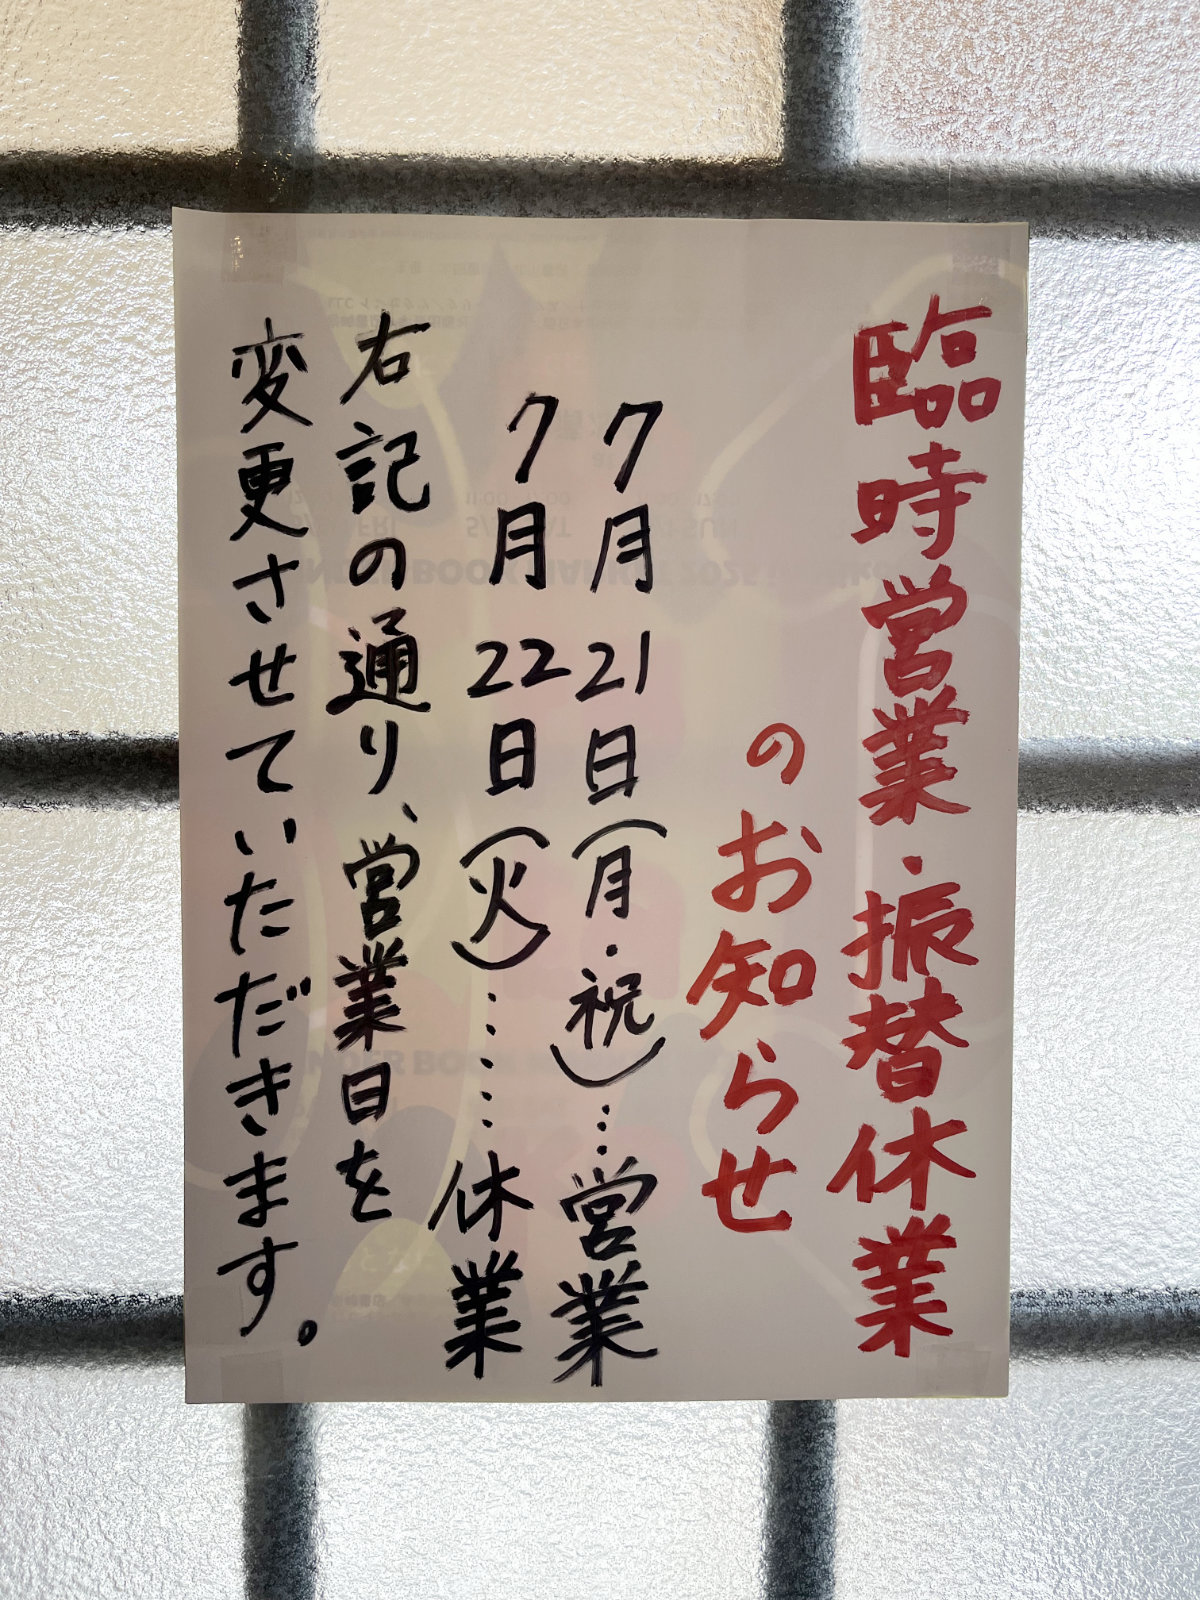 臨時営業・振替休業
のお知らせ
7月21日(月・祝)……営業
7月22日(火)………休業
右記の通り、営業日を
変更させていただきます。